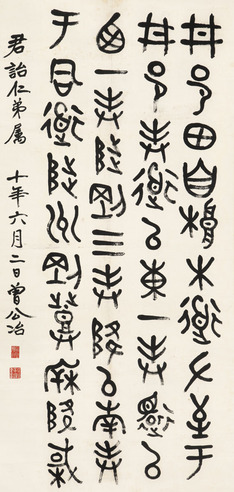 井邑田自桹木道左至于
井邑封道以東一封還以
西一封陟剛三封降以南封
于同道陟州剛登𣏟降棫
君詒仁弟属 十年六月二日曾公冶